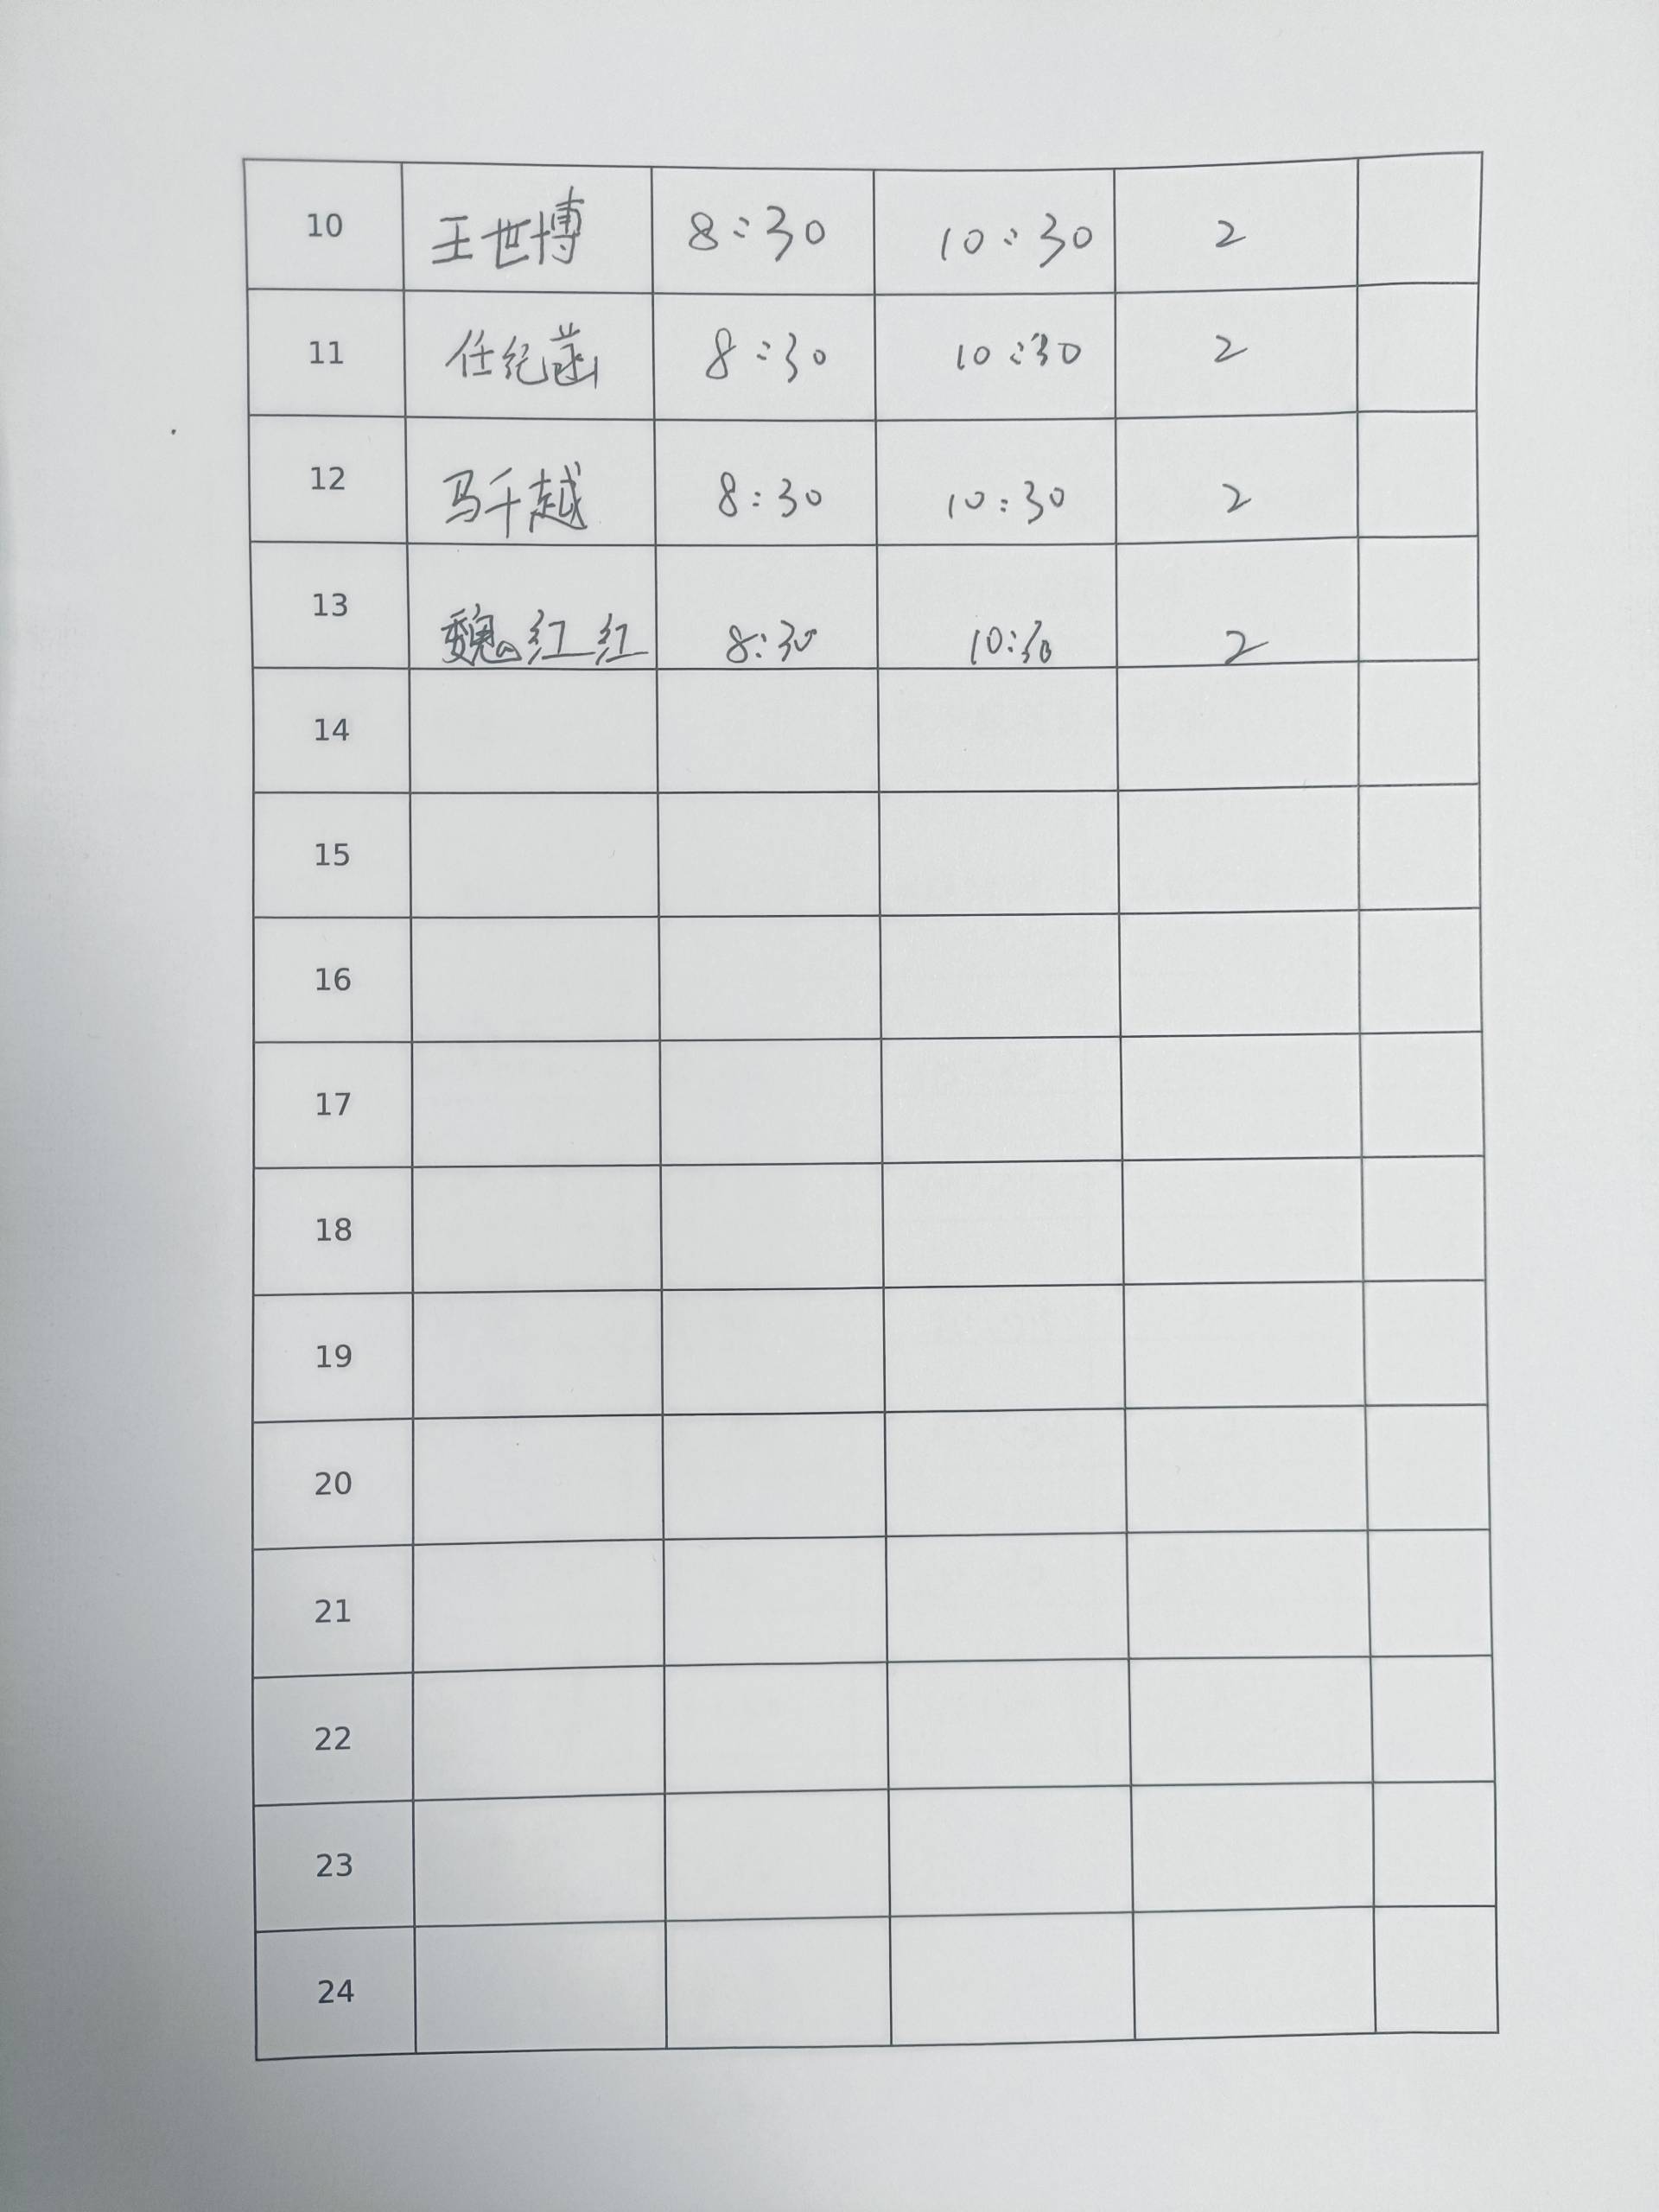 10 王世博 8:30 10:30 2
11 任纪菡 8:30 10:30 2
12 马千越 8:30 10:30 2
13 魏红红 8:30 10:30 2
14
15
16
17
18
19
20
21
22
23
24